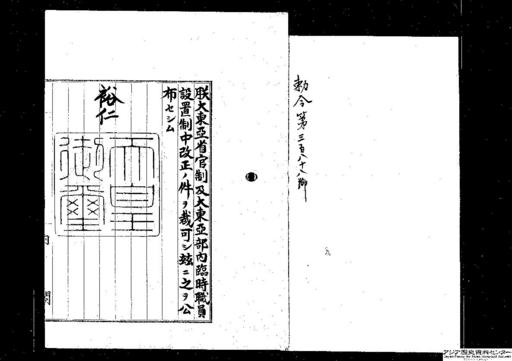 勅令第三百八十八号
朕大東亜省官制及大東亜部内臨時職員
設置制中改正ノ件ヲ裁可シ茲ニ之ヲ公
布セシム
裕仁
天皇
御璽
内閣
アジア歴史資料センター